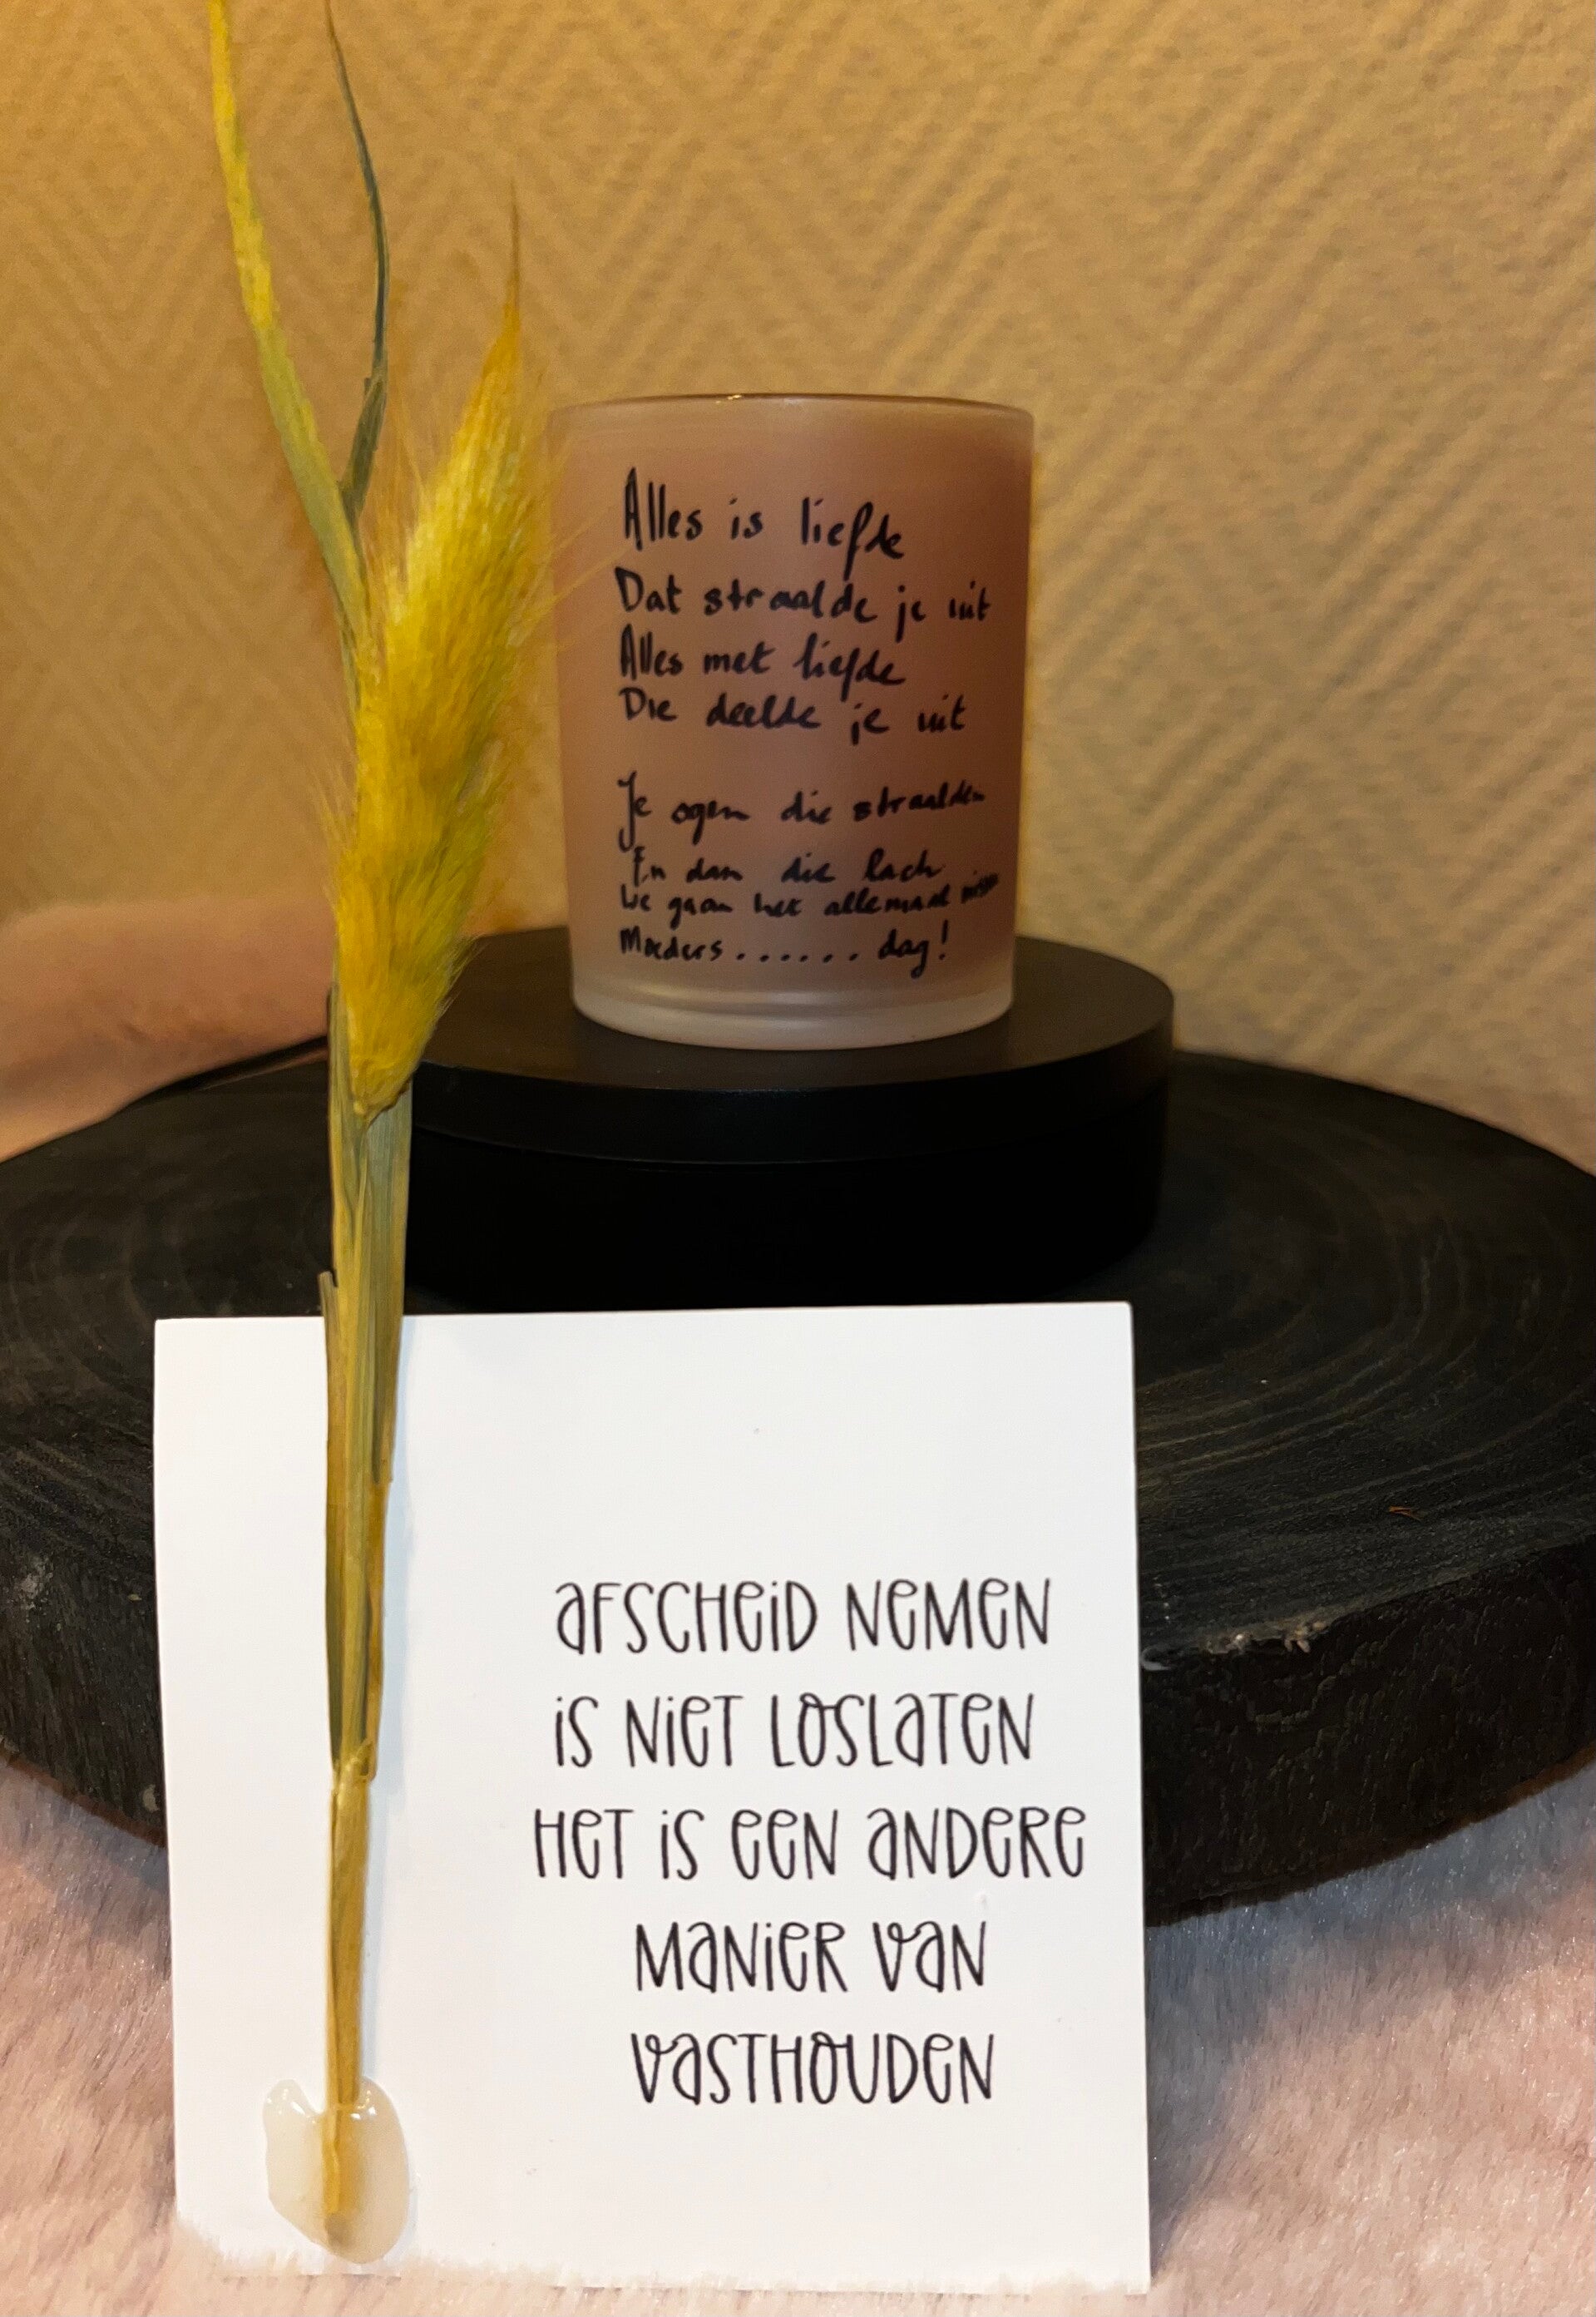 Alles is liefde
Dat straalde je uit
Alles met liefde
Die deelde je uit
Je ogen die straalden
En dan die lach
We gaan het allemaal missen
Moeders . . . . . . dag!
AFSCHEID NEMEN
IS NIET LOSLATEN
HET IS EEN ANDERE
MANIER VAN
VASTHOUDEN